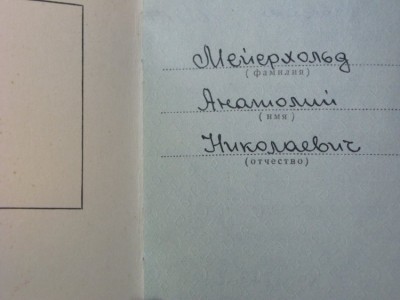 Мейерхольд
(фамилия)
Анатолий
(имя)
Николаевич
(отчество)